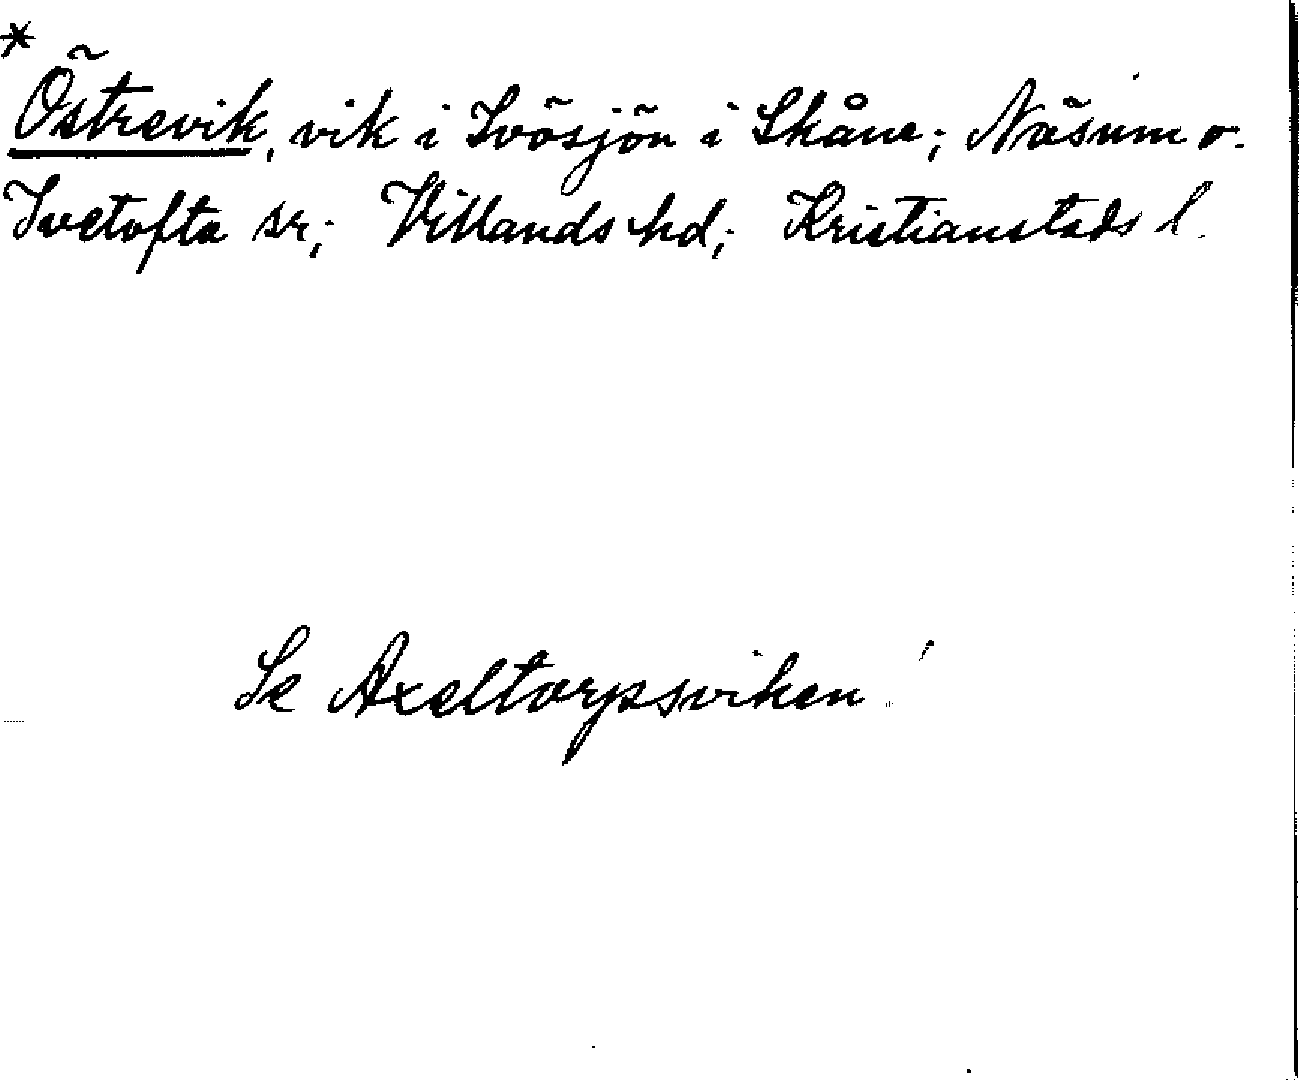 *
Östrevik, vik i Ivösjön i Skåne; Näsum o.
Ivetofta sr; Villands hd; Kristianstads l.
Se Axeltorpsviken!